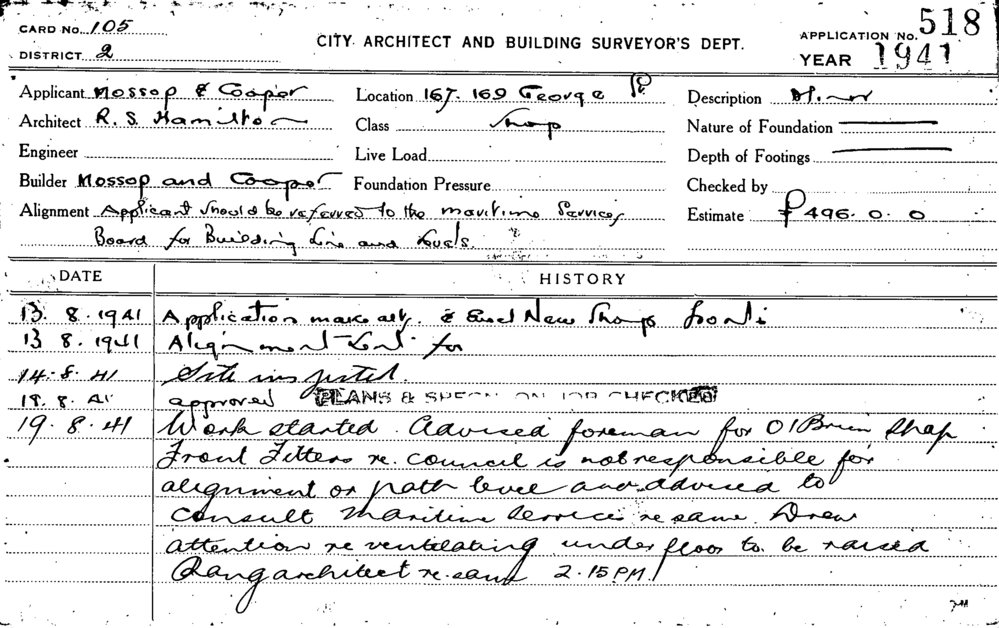 CARD No. 105
DISTRICT 2
CITY ARCHITECT AND BUILDING SURVEYOR'S DEPT.
APPLICATION No. 518
YEAR 1941
Applicant Mossop & Cooper
Location 167-169 George St
Description Minor
Architect R. S. Hamilton
Class Shop
Nature of Foundation
Engineer
Live Load
Depth of Footings
Builder Mossop and Cooper
Foundation Pressure
Checked by
Alignment Applicant should be referred to the maritime Services
Board for Building Line and Levels.
Estimate £496. 0. 0
DATE
HISTORY
13. 8. 1941 Application make alt. & Erect New Shop fronts
13 8. 1941 Alignment for
14. 8. 41 Site inspected.
18. 8. 41 approved PLANS & SPECN ON JOB CHECKED
19. 8. 41 Work started. Advised foreman for O'Brien Shop
Front Fitters re. council is not responsible for
alignment or path level and advised to
consult Maritime Services re same. Drew
attention re ventilating under floor to be raised
Rang architect re same 2.15 PM.